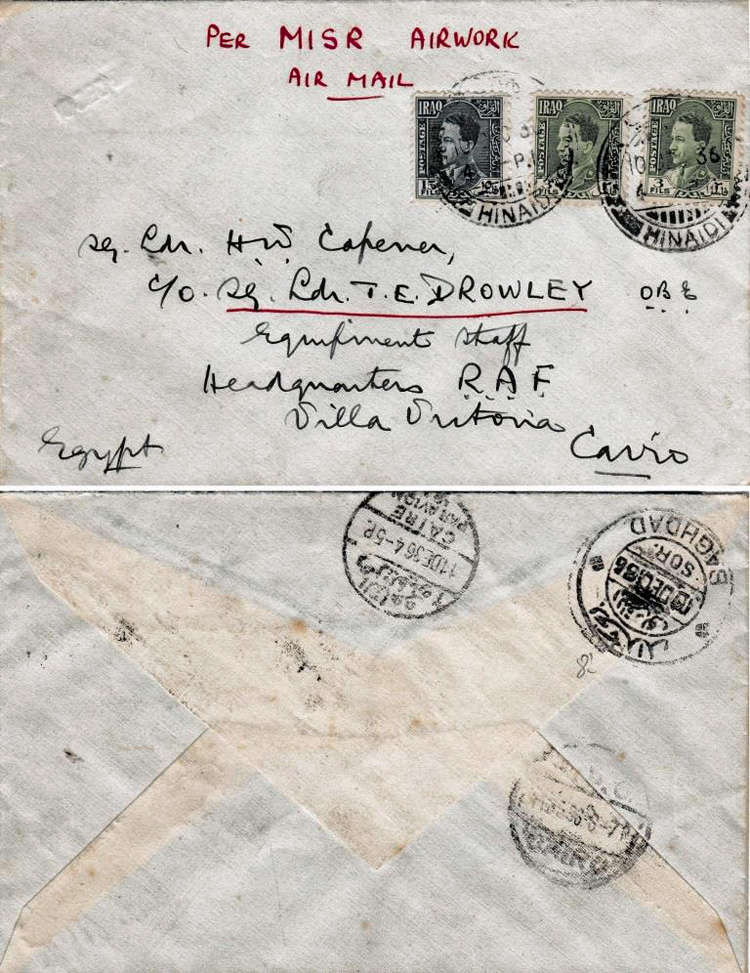 PER MISR AIRWORK
AIR MAIL
IRAQ
POSTAGE
IRAQ
POSTAGE
IRAQ
POSTAGE
HINAIDI
10 36
HINAIDI
Sq. Ldr. H.W. Capener,
c/o. Sq. Ldr. T. E. DROWLEY OBE
Equipment Staff
Headquarters R.A.F
Villa Vitoria
Cairo
Egypt
CAIRE
PAR AVION
11 DE 36 4-5P.
القاهرة
BAGHDAD
SORT.
DEC 36
CAIRO